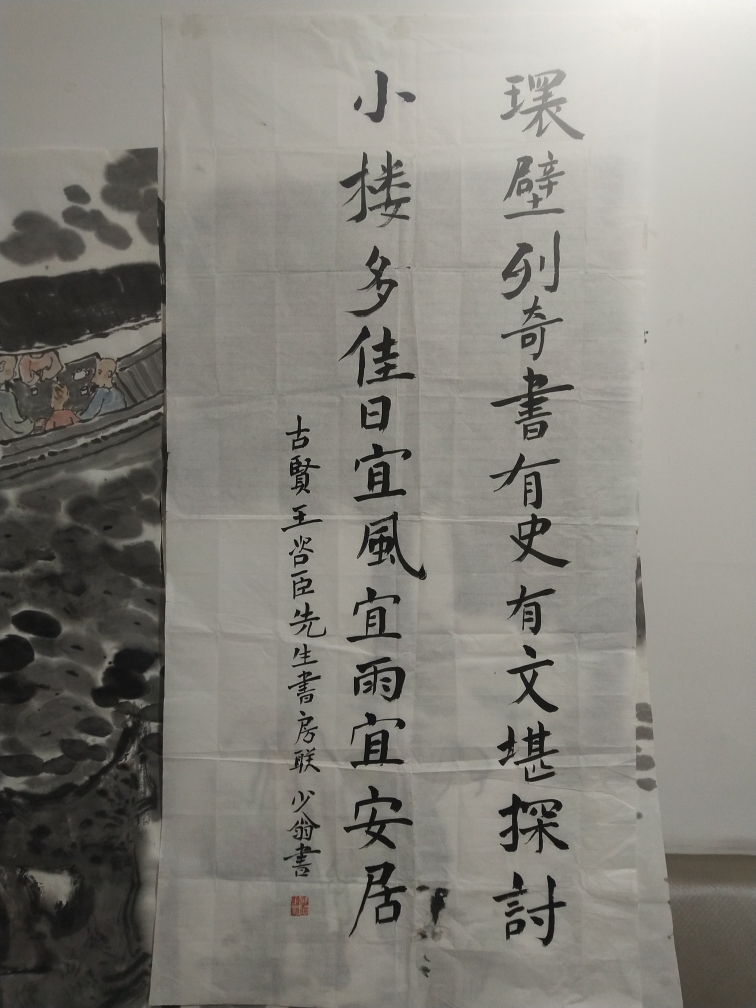 環壁列奇書有史有文堪探討
小楼多佳日宜風宜雨宜安居
古賢王咨臣先生書房联 少翁書